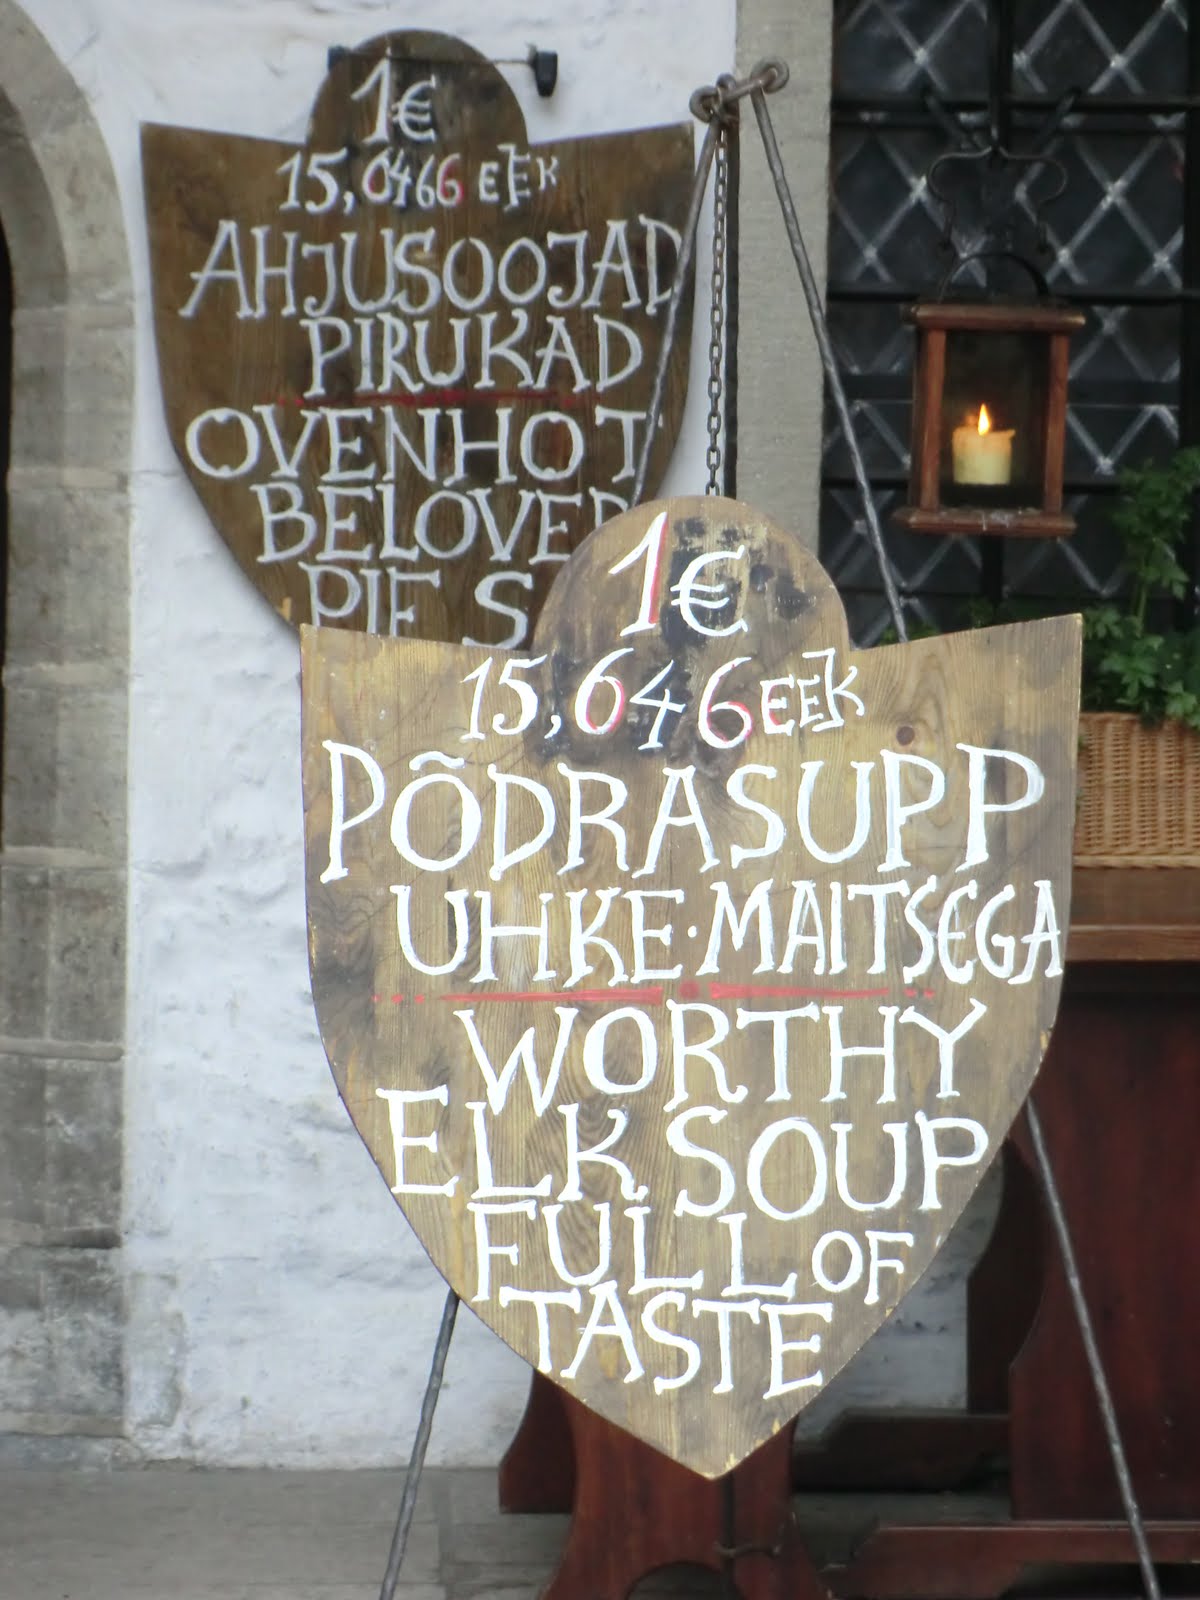 1€
15,0466 EEK
AHJUSOOJAD
PIRUKAD
OVENHOT
BELOVED
PIE S
1€
15,646 EEK
PÕDRASUPP
UHKE·MAITSEGA
WORTHY
ELK SOUP
FULL OF
TASTE